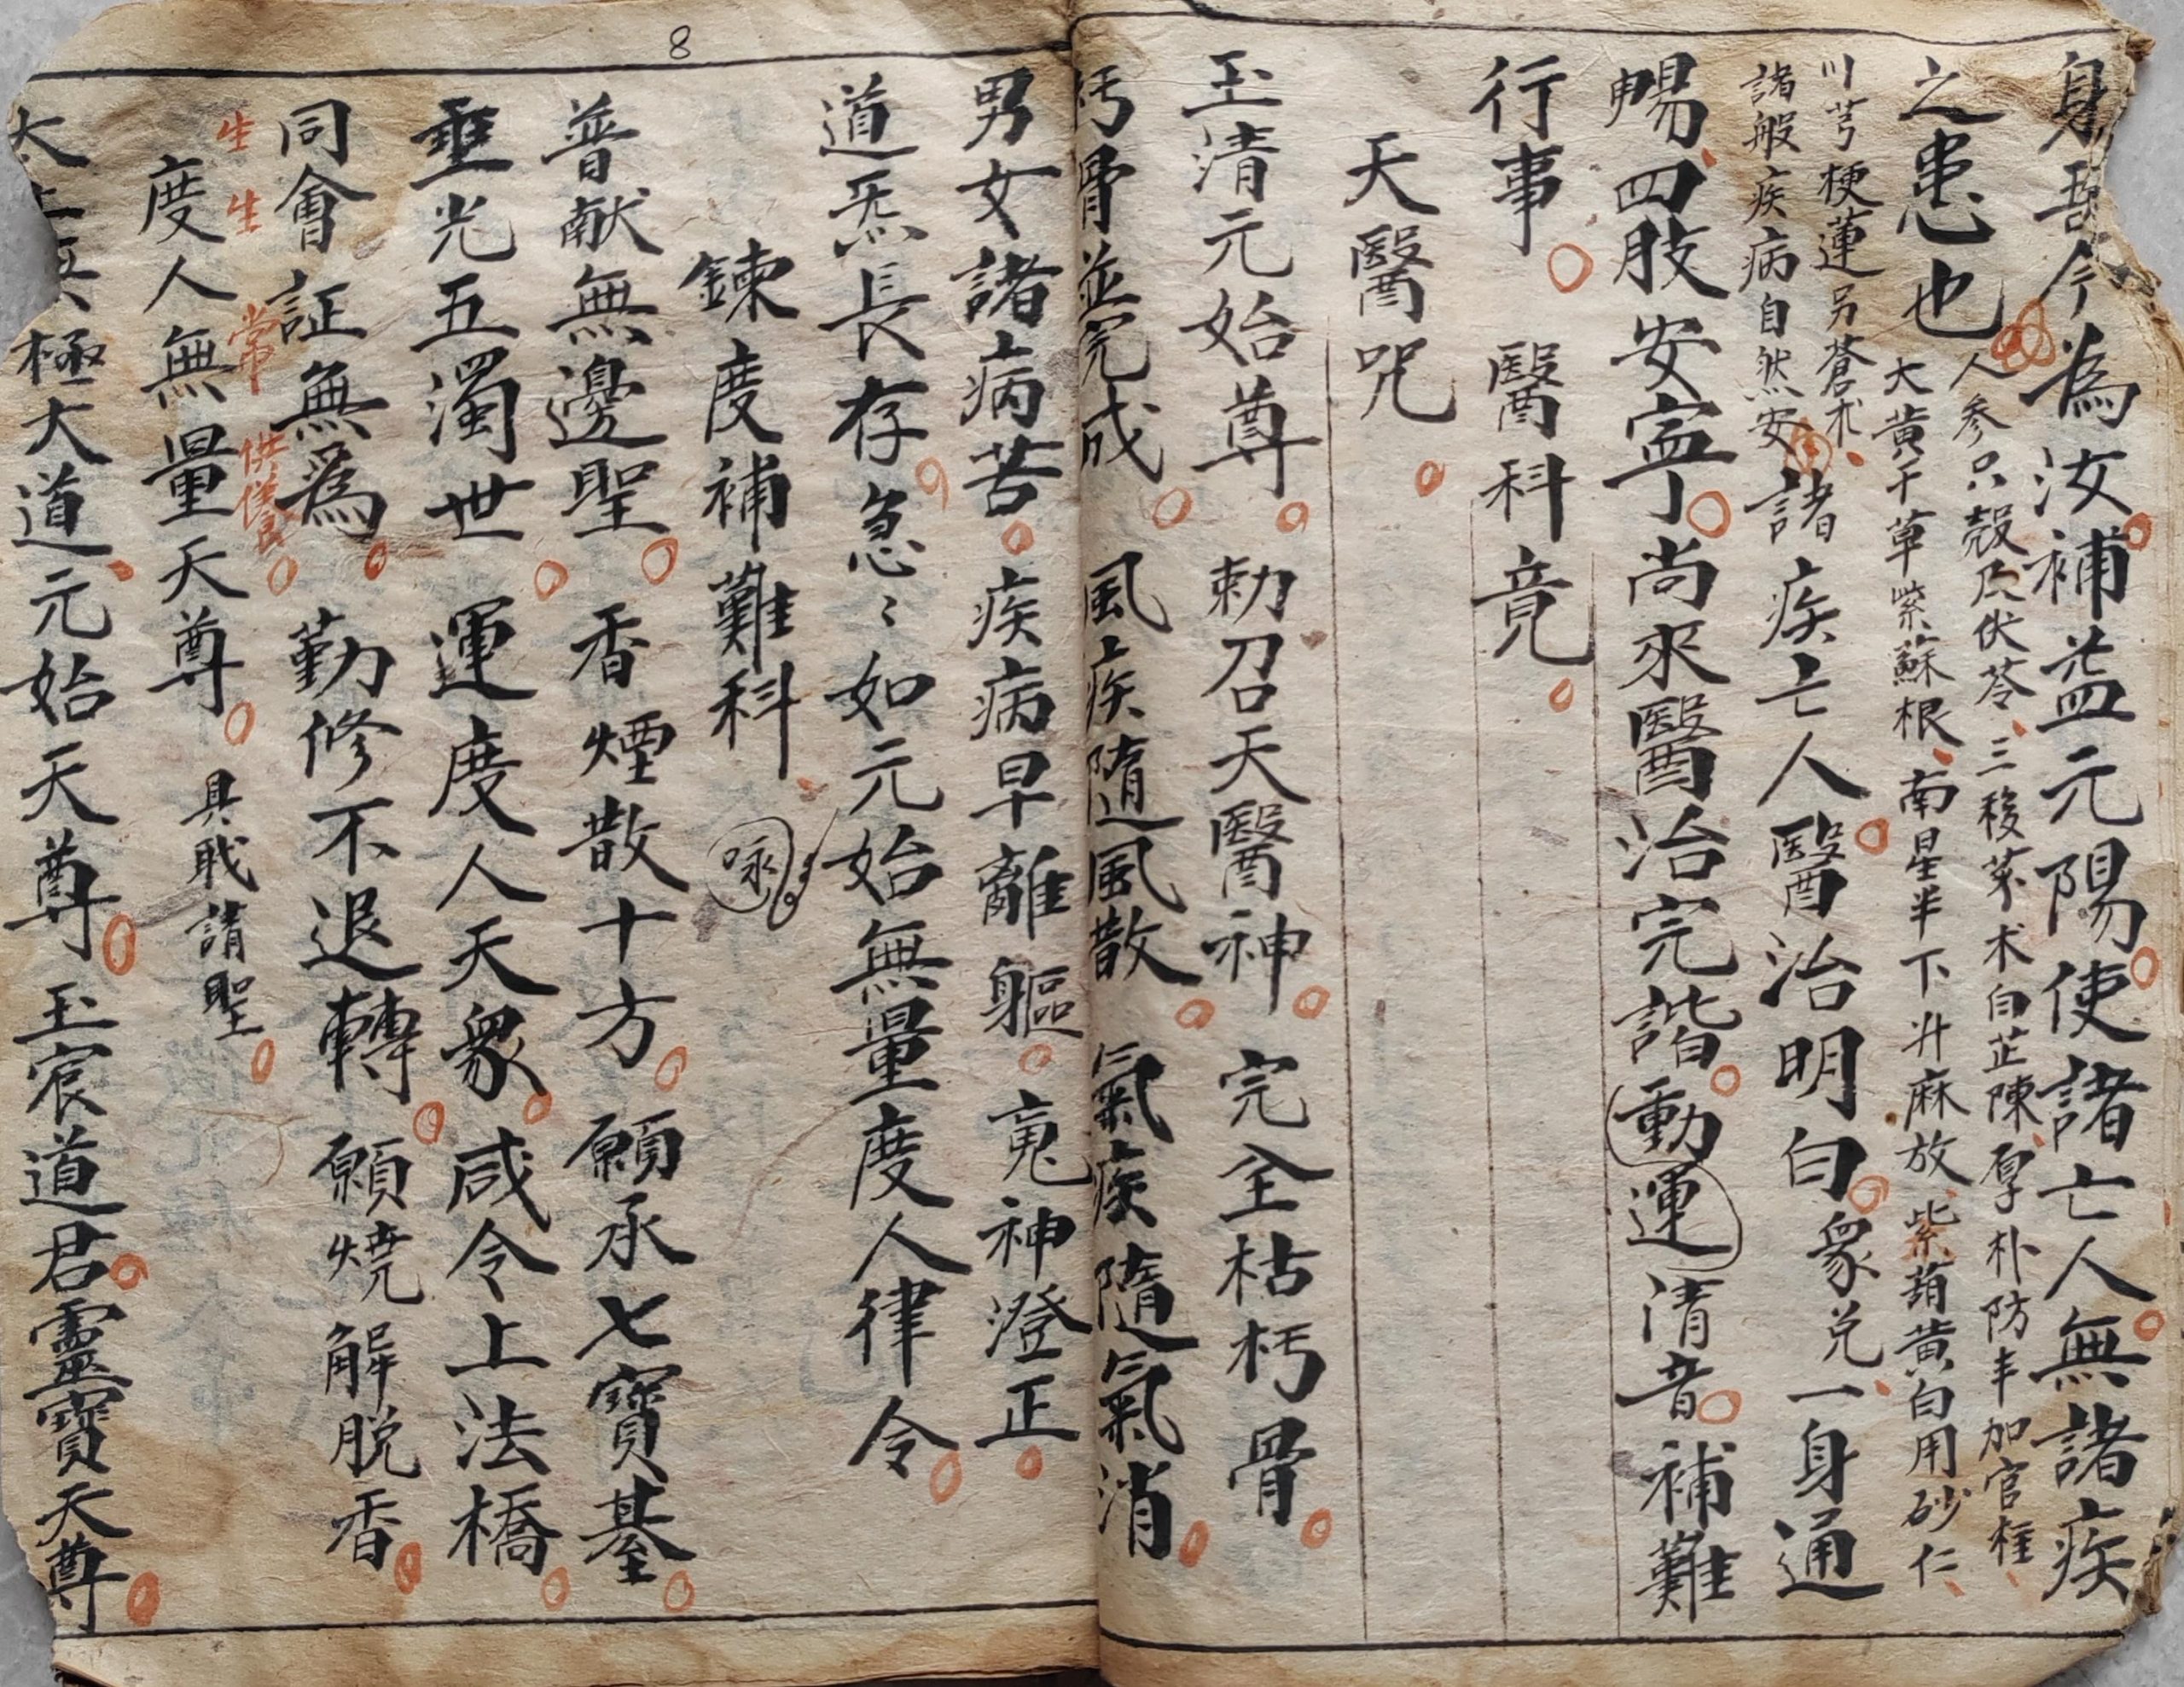 身吾今為汝補益元陽使諸亡人無諸疾
之患也
人參只殼及伏苓三稜莪术白芷陳厚朴防丰加官桂
大黄干草紫蘇根南星半下升麻放紫葫黄白用砂仁
川芎梗蓮另蒼术
諸般疾病自然安
諸疾亡人醫治明白衆兑一身通
暢四肢安寧尚來醫治完諧動運清音補難
行事 醫科竟
天醫咒
玉清元始尊 勅召天醫神 完全枯朽骨
朽骨並完成 風疾隨風散 氣疾隨氣消
男女諸病苦 疾病早離軀 䰟神澄正
道炁長存急々如元始無量度人律令
鍊度補難科 咏
普献無邊聖 香煙散十方 願承七寶臺
垂光五濁世 運度人天衆 咸令上法橋
同會証無為 勤修不退轉 願燒解脱香
生生常供養
度人無量天尊 具戝請聖
太上五極大道元始天尊 玉宸道君靈寶天尊
8